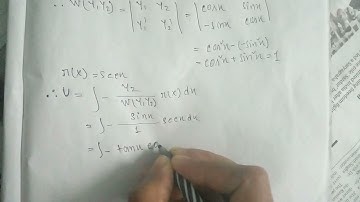 ∴ W(y₁, y₂) = | y₁ y₂ | = | cosx sinx |
| y₁' y₂' | | -sinx cosx |
= cos²x - (-sin²x)
= cos²x + sin²x = 1
r(x) = secx
∴ U = ∫ - y₂ / W(y₁y₂) r(x) dx
= ∫ - sinx / 1 secx dx
= ∫ - tanx